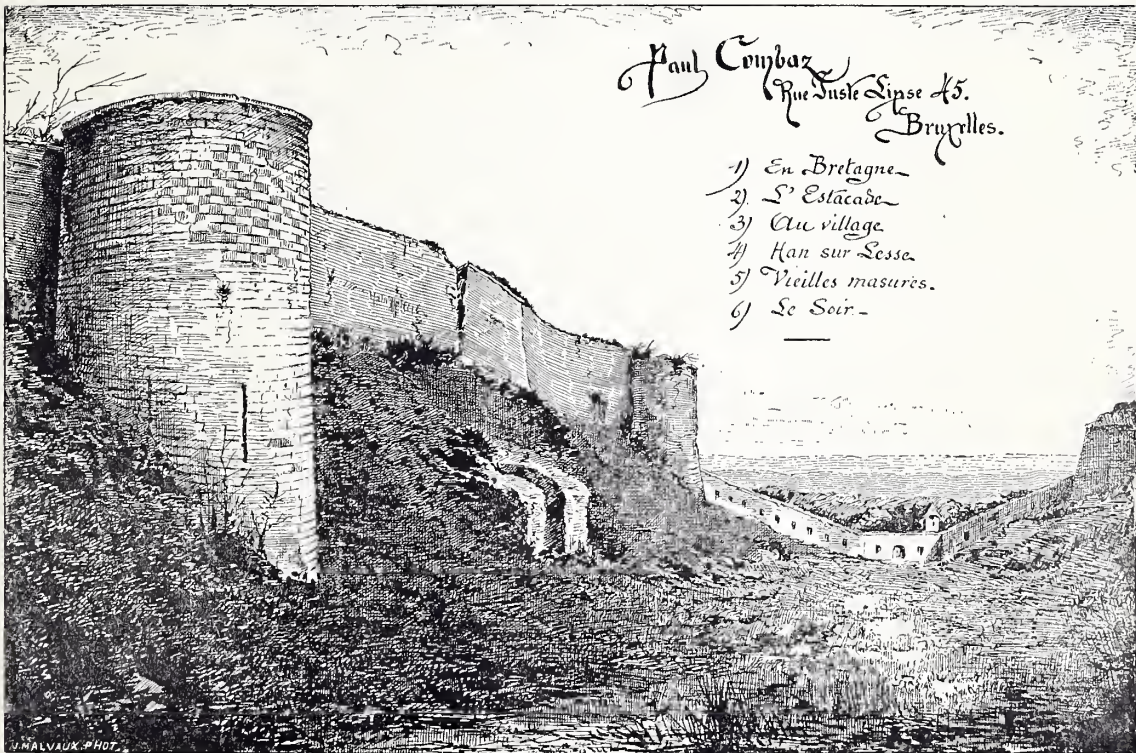 Paul Combaz
Rue Juste Lipse 45.
Bruxelles.
1) En Bretagne
2) L'Estacade
3) Au village
4) Han sur Lesse
5) Vieilles masures.
6) Le Soir.
J. MALVAUX. PHOT.